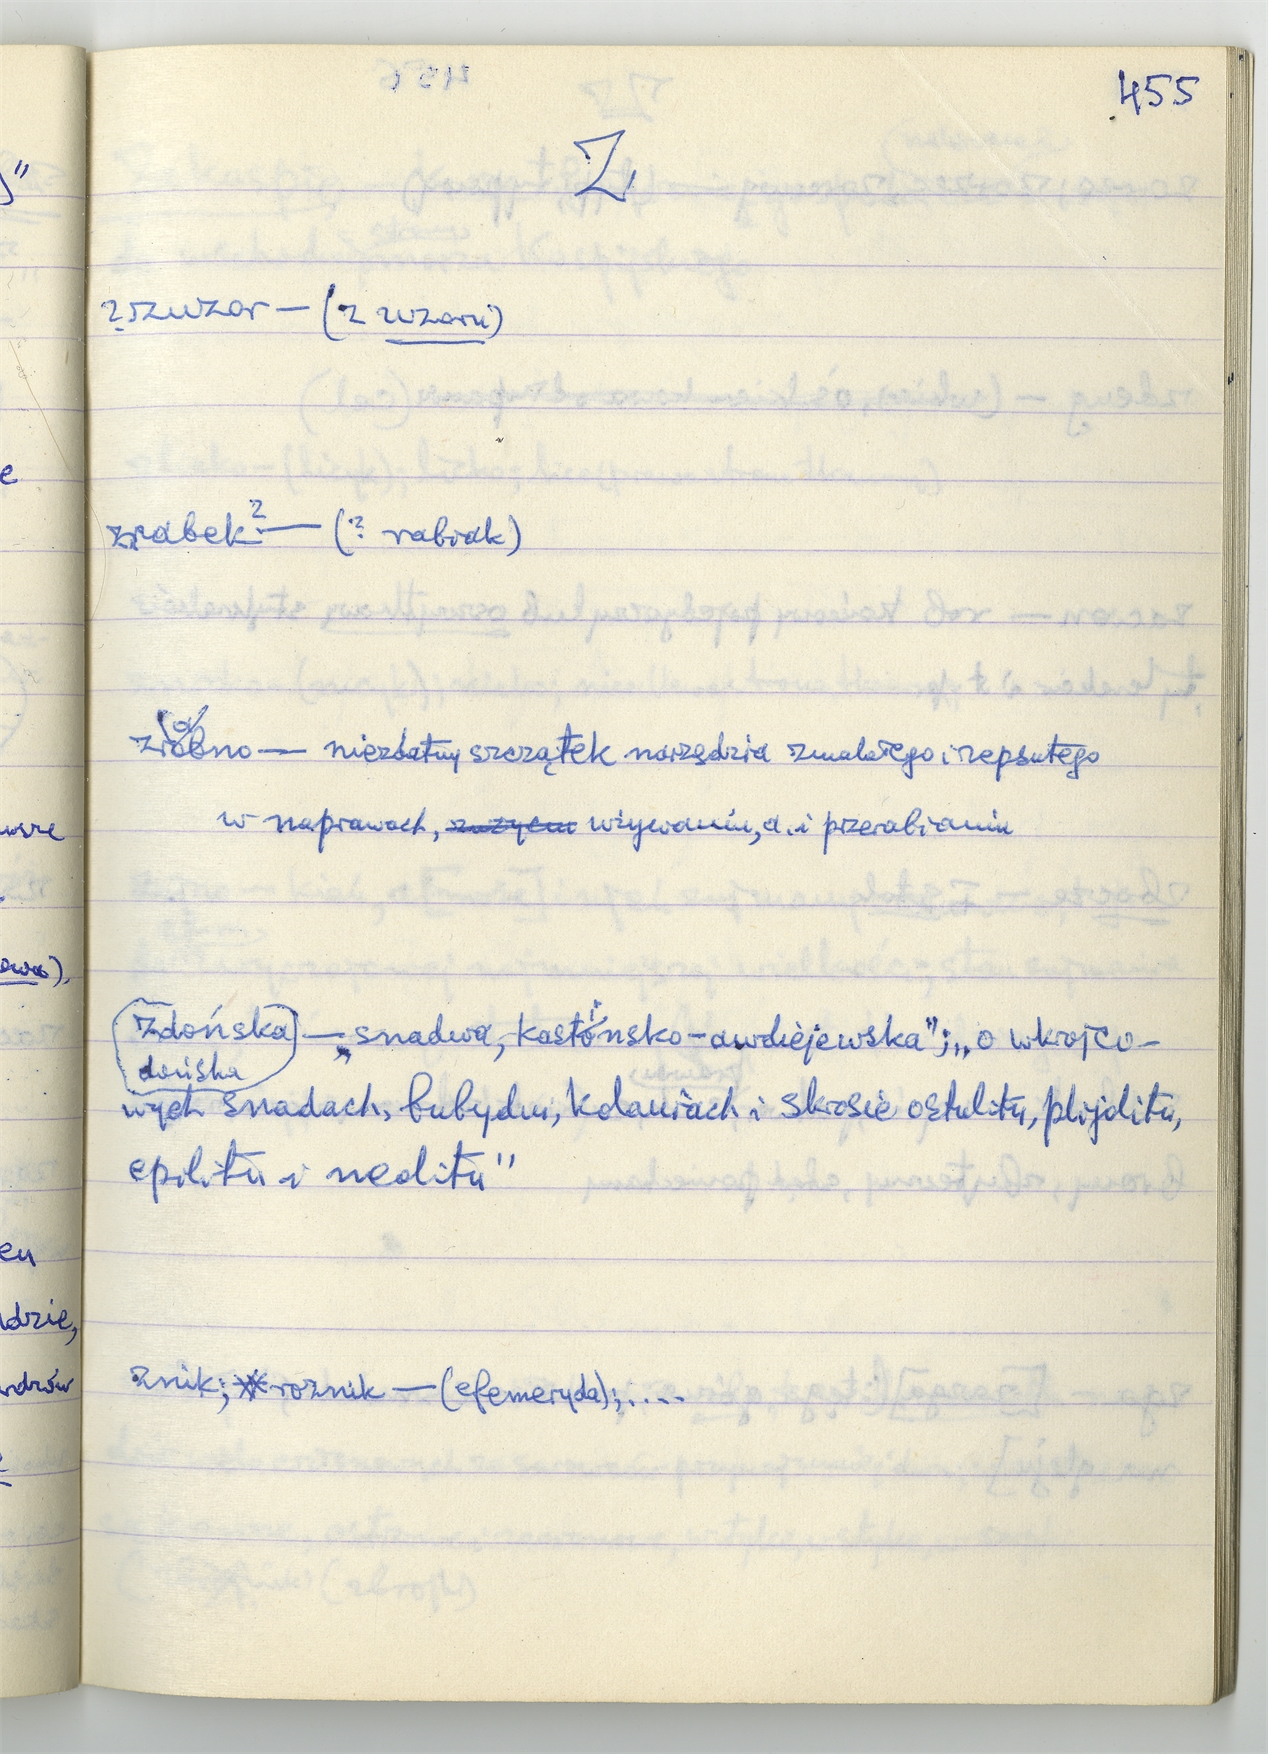 455
Z
? szuzor — (z wzoru)
zrabek? — (? rabiak)
zrobno — niezdatny szczątek narzędzia zmalałego i zepsutego
w naprawach, używaniu, a. i przerabianiu
Zdońska — „snadwa, kastońsko-awdiejewska"; „o wkrojco-
dońska
wych snadach, bubydu, kolauřach i skrosie ostulitu, plijolitu,
epilitu i neolitu"
znik; roznik — (efemeryda); ....